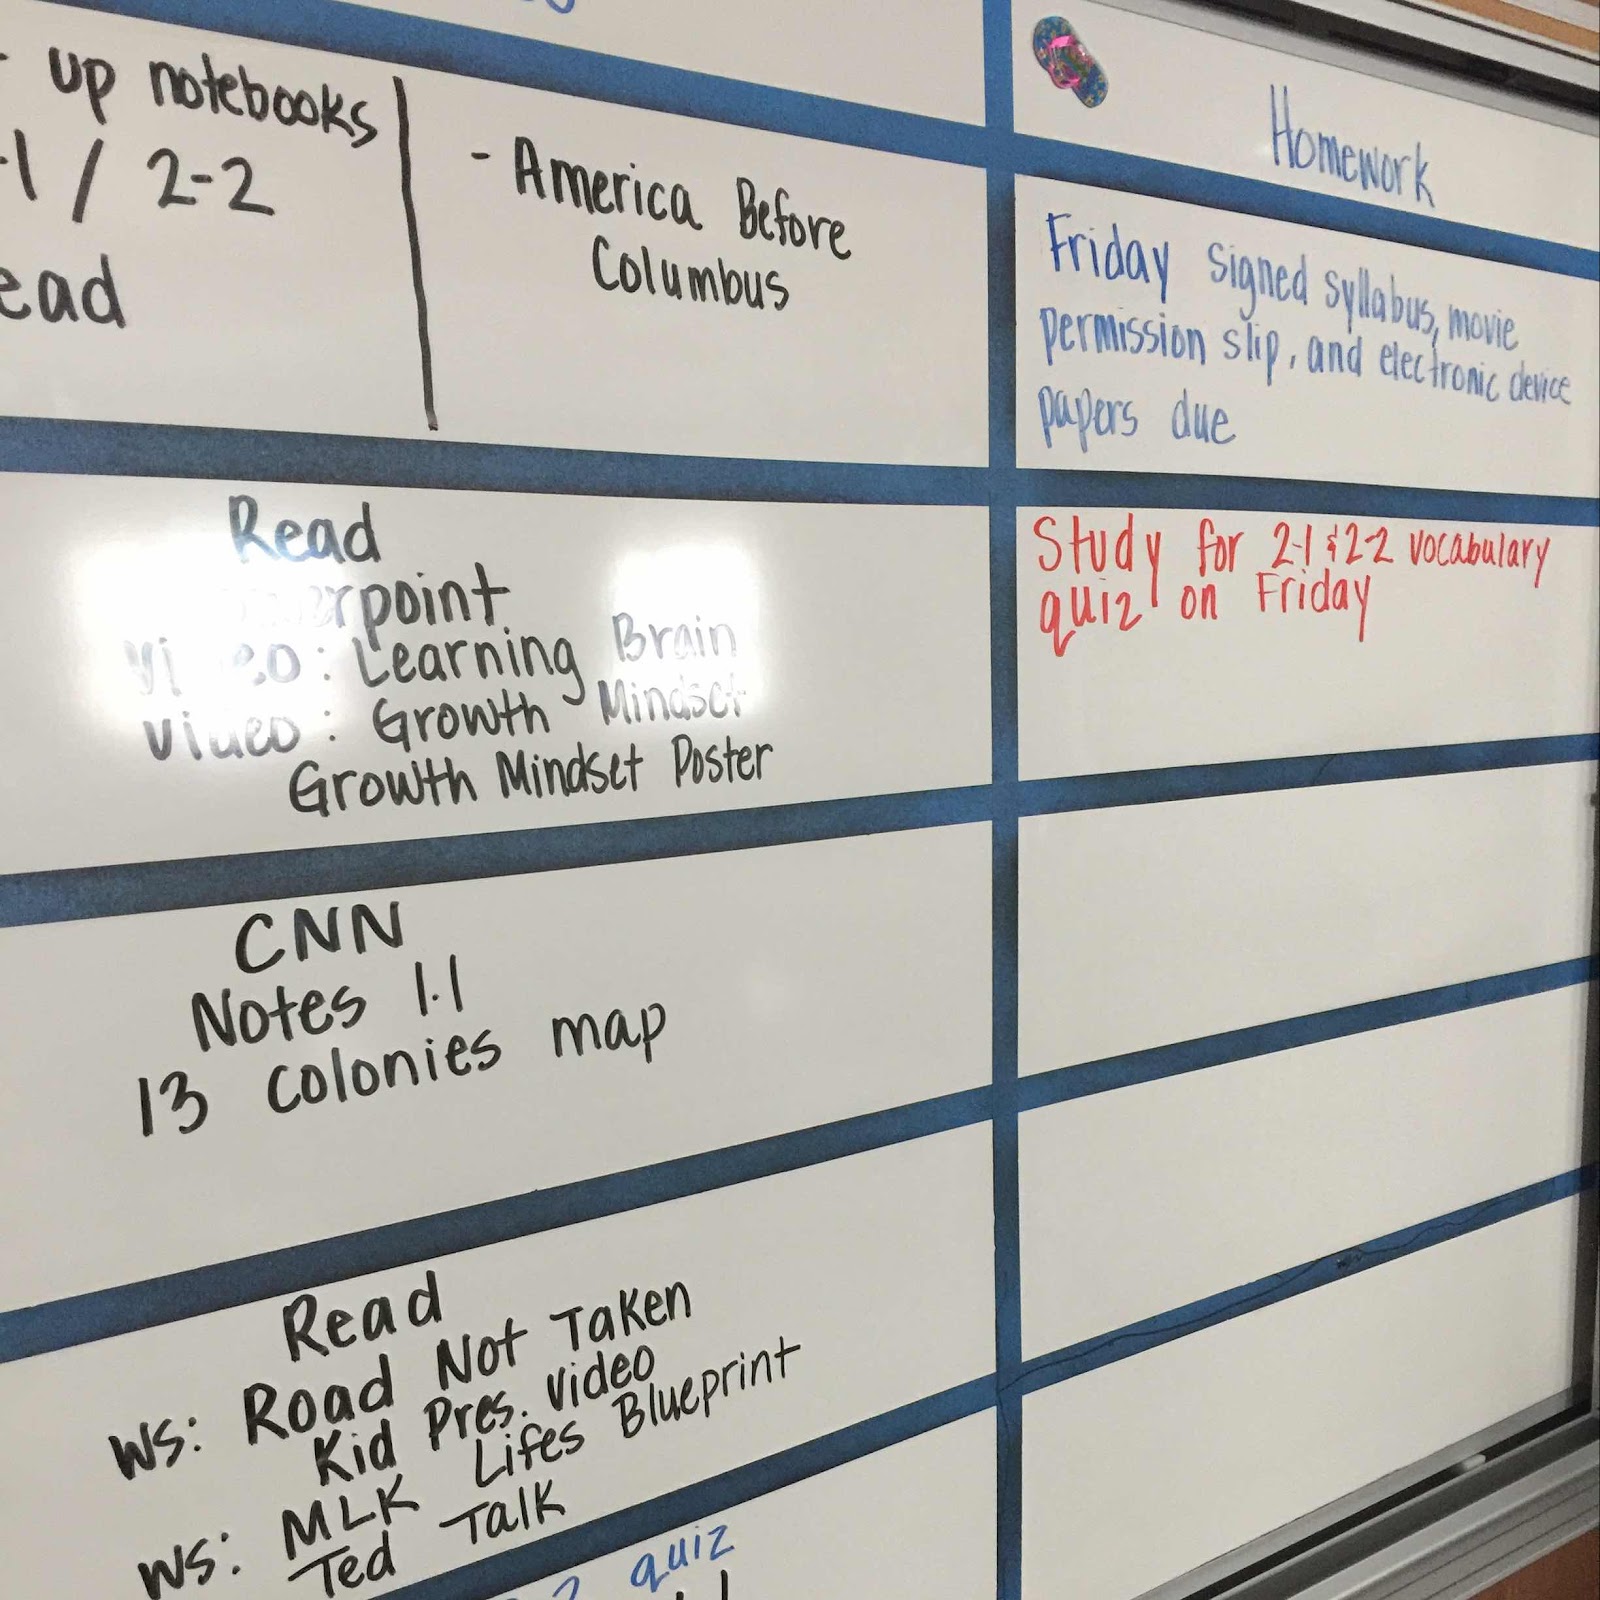 up notebooks
-1 / 2-2
ead
- America Before
Columbus
Homework
Friday signed syllabus, movie
permission slip, and electronic device
papers due
Read
erpoint
Video: Learning Brain
Video: Growth Mindset
Growth Mindset Poster
Study for 2-1 & 2-2 vocabulary
quiz on Friday
CNN
Notes 1.1
13 colonies map
Read
WS: Road Not Taken
Kid Pres. Video
WS: MLK Lifes Blueprint
Ted Talk
2 quiz